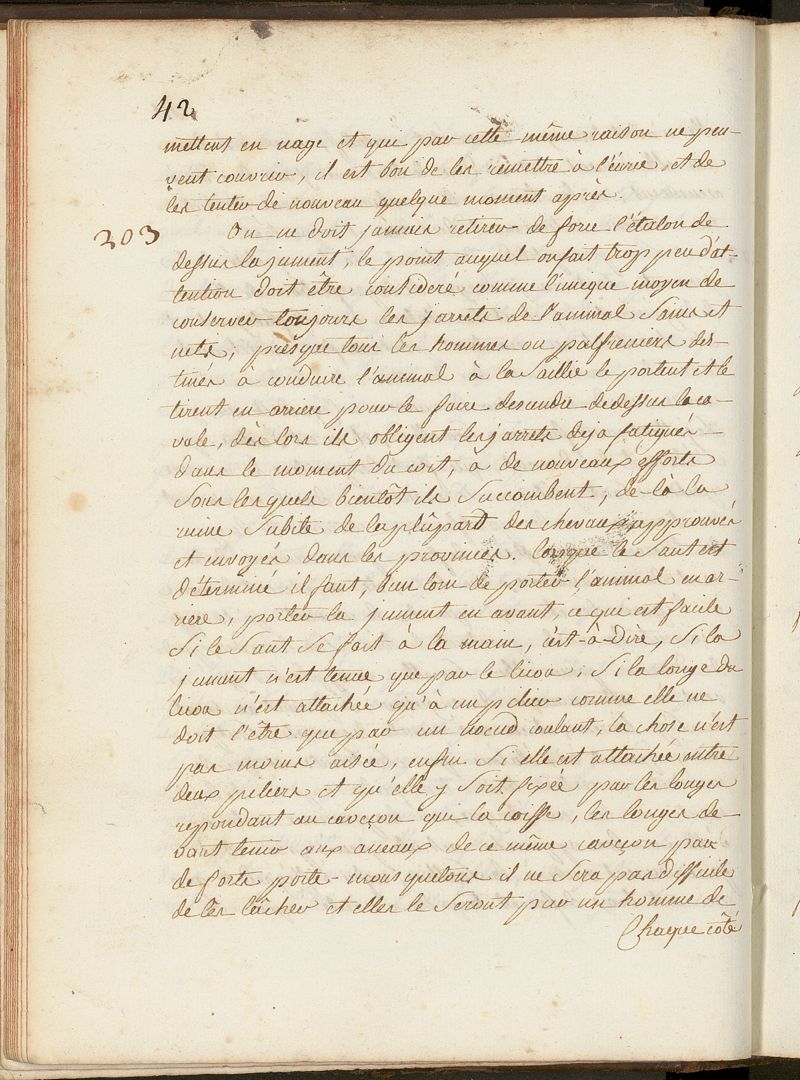 42
mettent en nage et que par cette même raison ne peu-
vent couvrir, il est bon de les remettre à l'écurie, et de
les tenter de nouveau quelque moment après.
303
On ne doit jamais retirer de force l'étalon de
dessus la jument, le point auquel on fait trop peu d'at-
tention doit être consideré comme l'unique moyen de
conserver toujours les jarrets de l'animal sains et
nets, presque tous les hommes ou palfreniers des-
tinés à conduire l'animal à la saillie le portent et le
tirent en arriere pour le faire descendre de dessus la ca-
vale, dès lors ils obligent les jarrets deja fatigués
dans le moment du coit, à de nouveaux efforts
sous lesquels bientôt ils succombent, de là la
ruine subite de la plûpart des chevaux approuvés
et envoyés dans les provinces. lorsque le saut est
déterminé il faut, bien loin de porter l'animal en ar-
riere, porter la jument en avant, ce qui est facile
si le saut se fait à la main, c'est-à-dire, si la
jument n'est tenue que par le licou; si la longe du
licou n'est attachée qu'à un pilier comme elle ne
doit l'être que par un noeud coulant, la chose n'est
pas moins aisée, enfin si elle est attachée entre
deux piliers et qu'elle y soit fixée par les longes
repondant au caveçon qui la coiffe, les longes de-
vant tenir aux aneaux de ce même caveçon par
de forts porte-mousquetons il ne sera pas difficile
de les lâcher et elles le seront par un homme de
Chaque côté